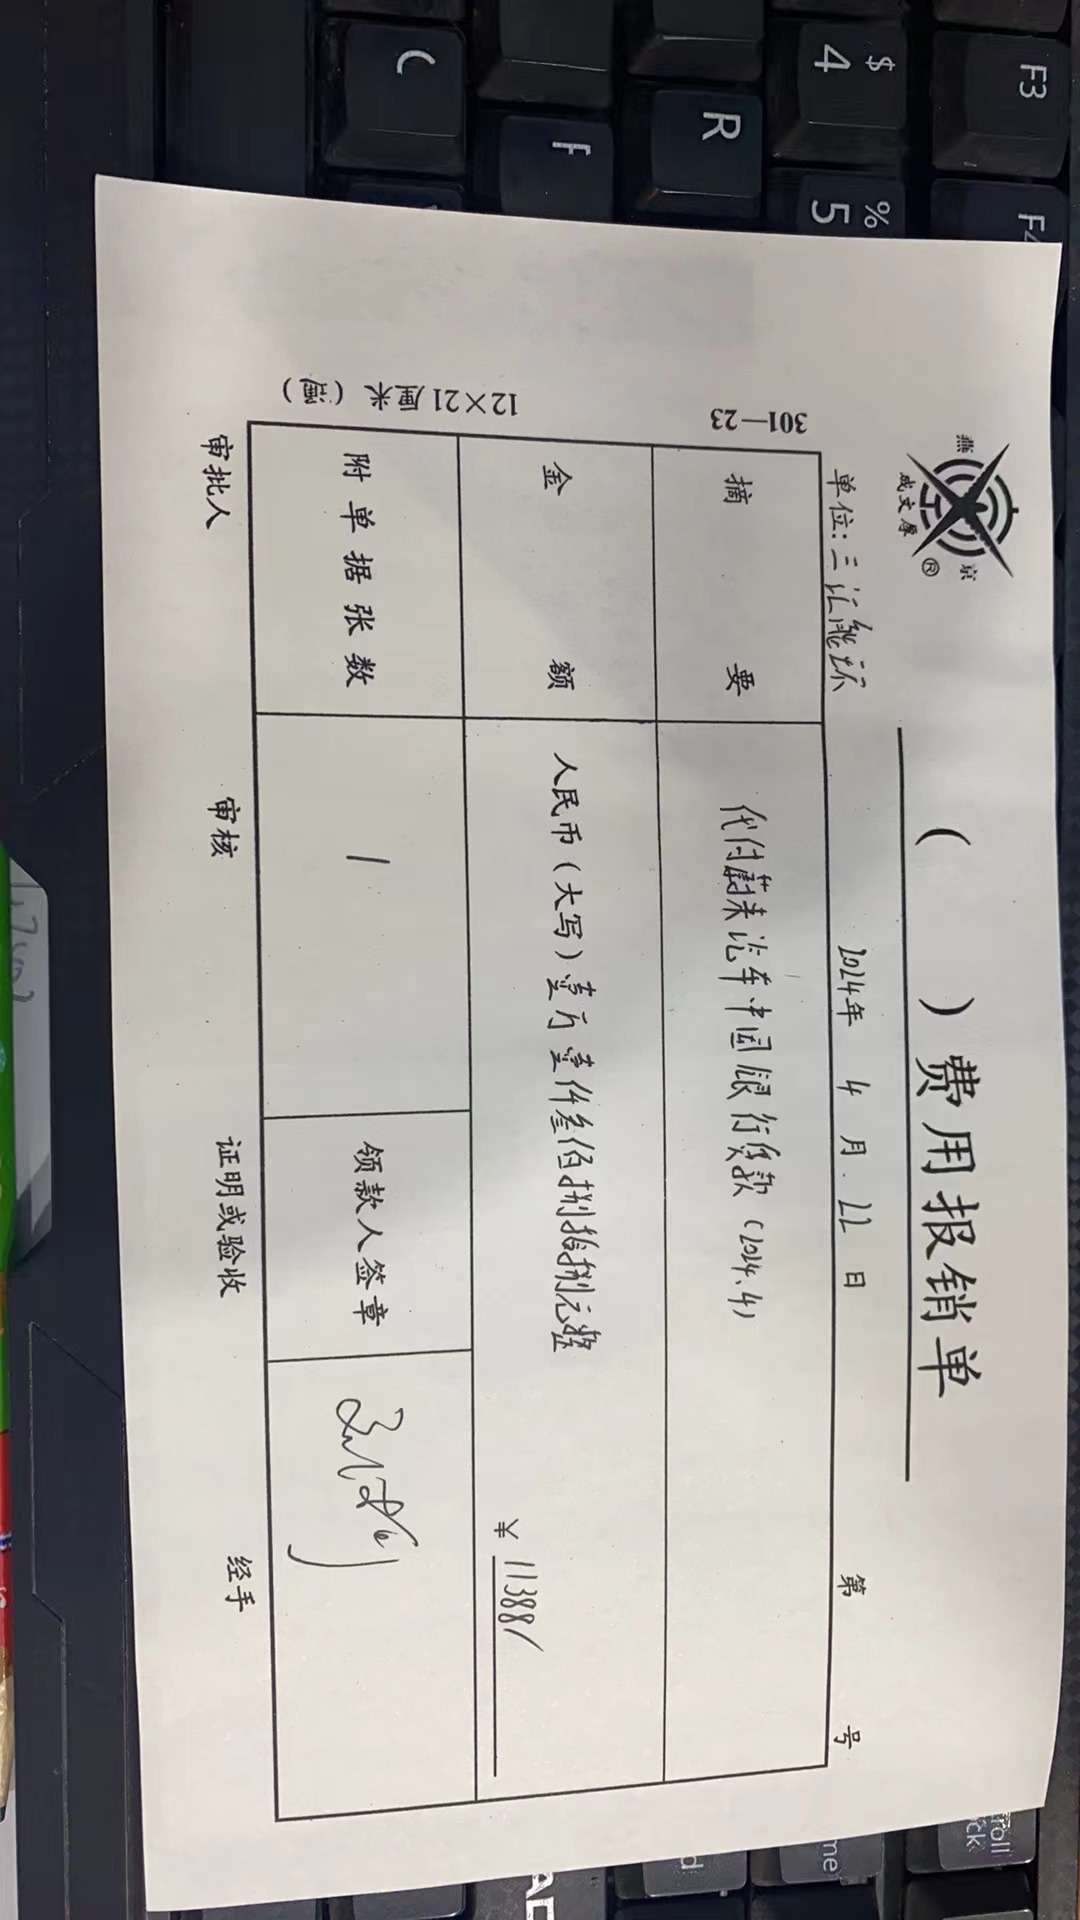 燕京
成文厚
®
( ) 费用报销单
单位: 三汇能环 2024年 4月 22日 第 号
301—23
12×21厘米(薄)
摘要 代付蔚来汽车中国银行贷款(2024.4)
金额 人民币(大写)壹万壹仟叁佰捌拾捌元整
¥ 11388/
附单据张数 1 领款人签章
审批人 审核 证明或验收 经手
F3
F4
$
4
%
5
R
F
C